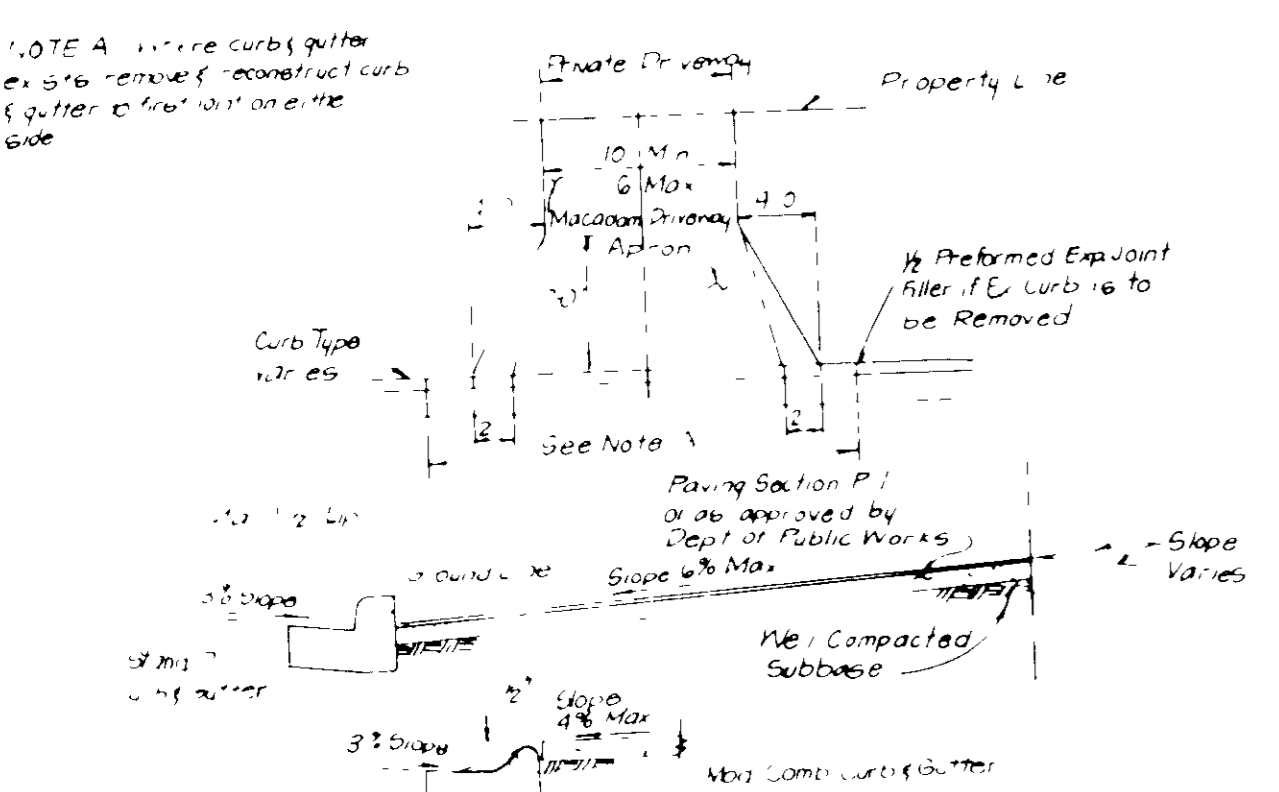 NOTE A where curb & gutter
exists remove & reconstruct curb
& gutter to first joint on either
side
Private Driveway
Property Line
10 Min
6 Max
4 0
Macadam Driveway
Apron
1/2 Preformed Exp Joint
Filler if Ex Curb is to
be Removed
Curb Type
varies
2
2
See Note
Paving Section P 1
or as approved by
Dept of Public Works
Slope
Varies
Ground Line
Slope 6% Max
Slope
Well Compacted
Subbase
Gutter
Slope
4% Max
3% Slope
Mod Comb Curb & Gutter